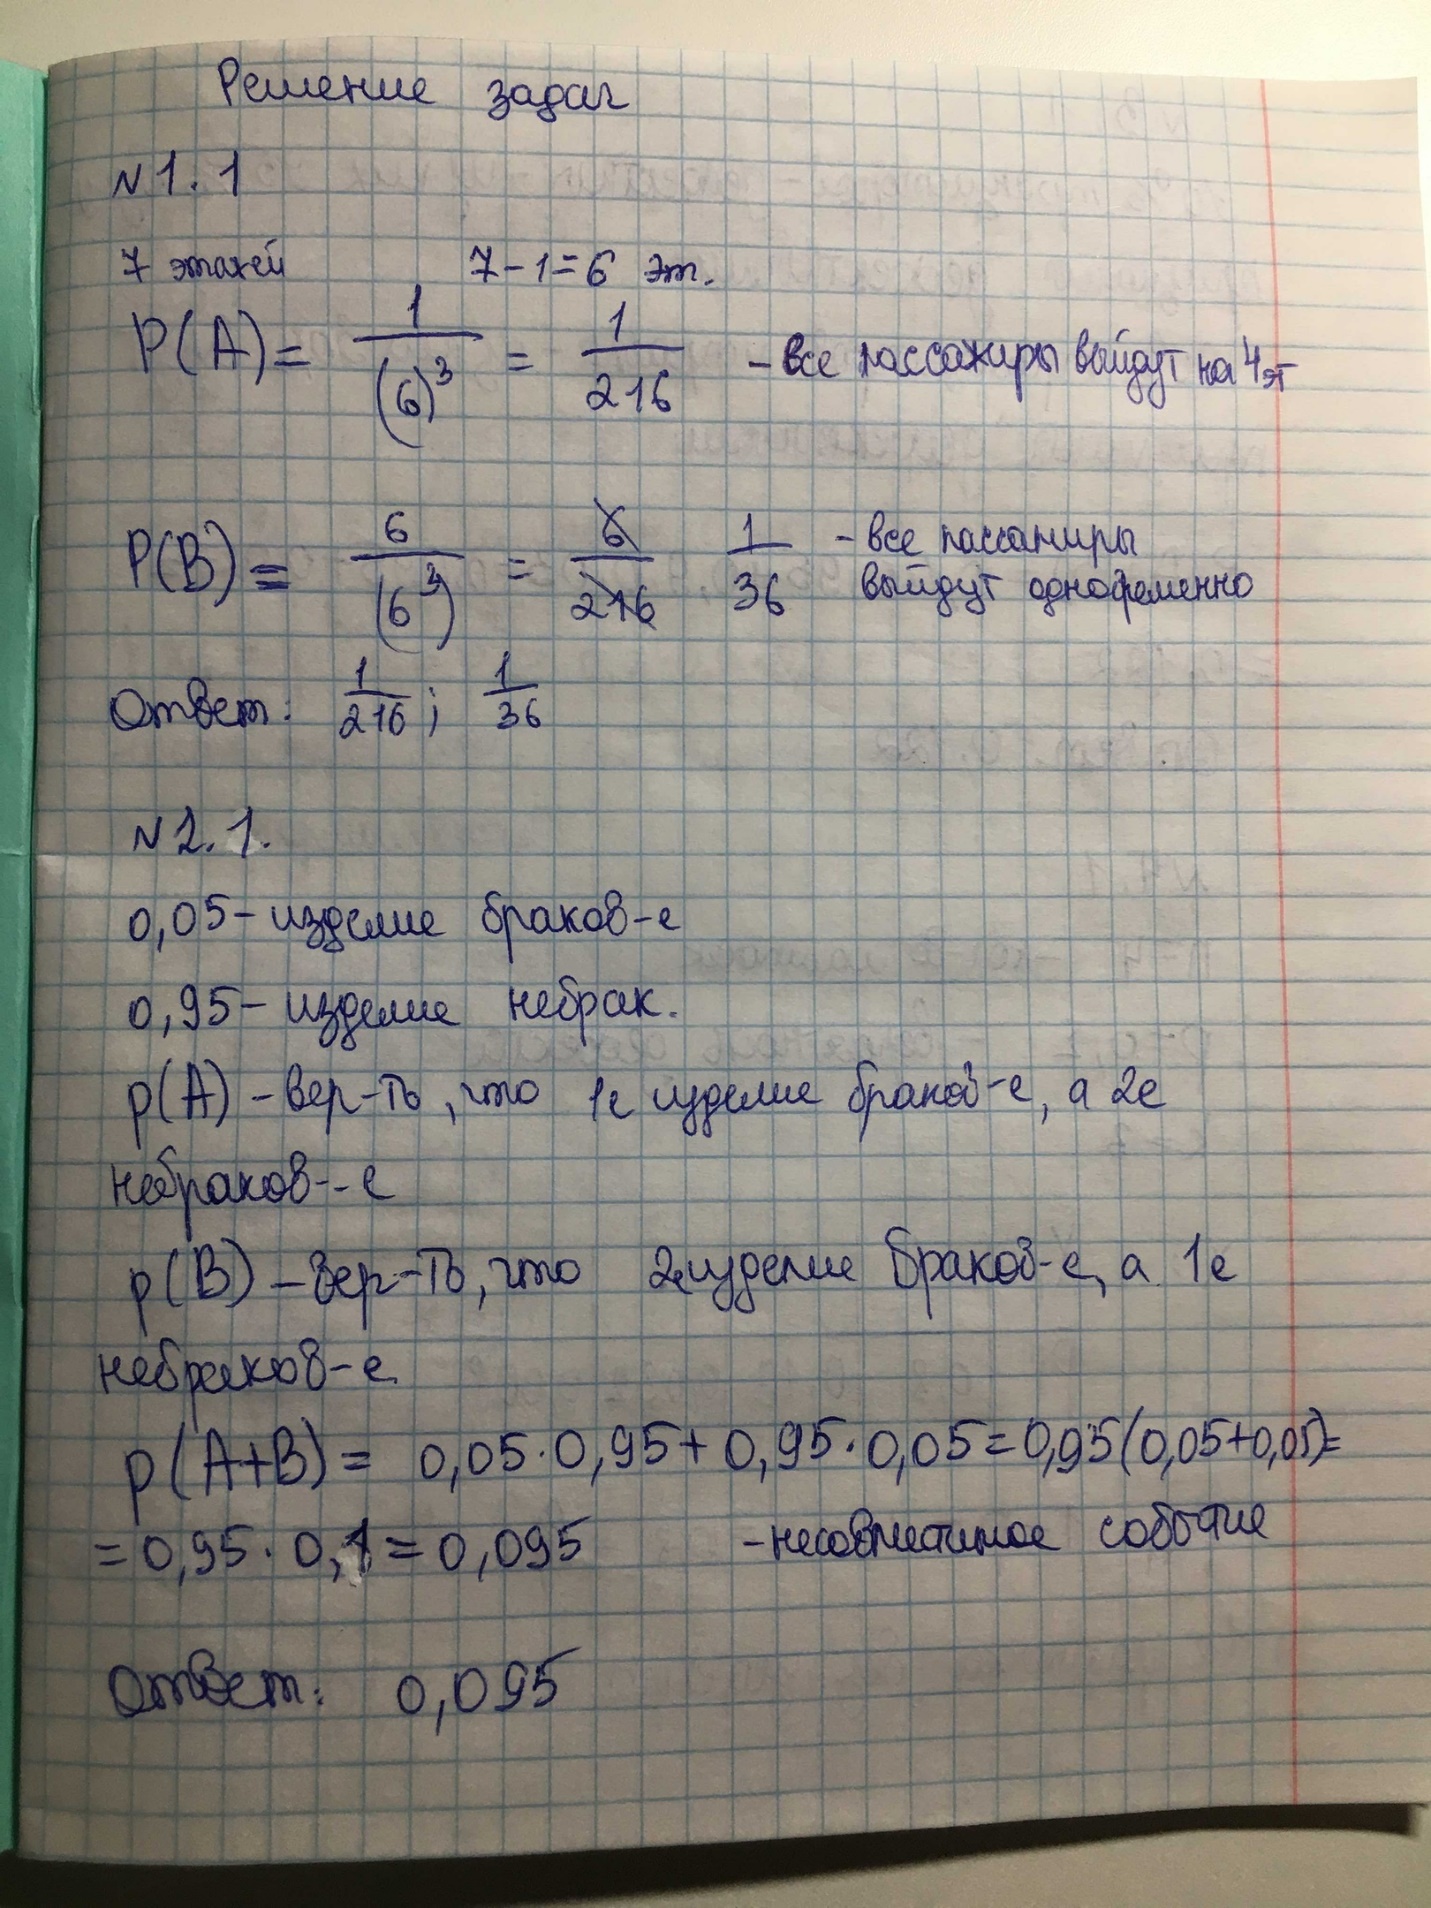 Решение задач
№1.1
7 этажей 7-1=6 эт.
P(A) = 1/(6)^3 = 1/216 - все пассажиры выйдут на 4 эт
P(B) = 6/(6^3) = 6/216 1/36 - все пассажиры
выйдут одновременно
Ответ: 1/216; 1/36
№2.1.
0,05 - изделие браков-е
0,95 - изделие небрак.
p(A) - вер-ть, что 1е изделие браков-е, а 2е
небраков-е
p(B) - вер-ть, что 2е изделие браков-е, а 1е
небраков-е
p(A+B) = 0,05·0,95+0,95·0,05=0,95(0,05+0,05)=
=0,95·0,1=0,095 - несовместимое событие
Ответ: 0,095